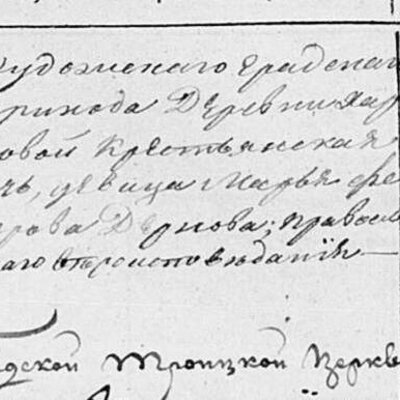 Пудожскаго градскаго
прихода Деревни Хар
овой крестьянская
чь, девица Марья Фе
дорова Дернова; правосл
наго вѣроисповѣданія
дской Троицкой Церкв